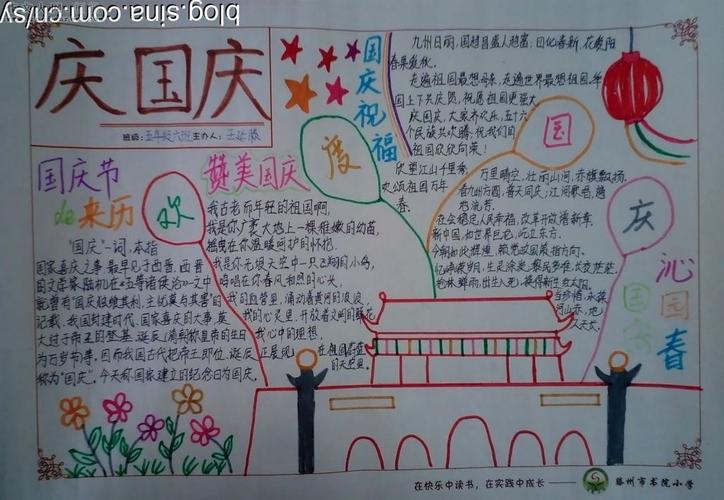 blog.sina.com.cn/sy
庆国庆
班级:五年级六班主办人:
国庆节
de来历
"国庆"一词,本指
国家喜庆之事,最早见于西晋。西晋
的文学家陆机在《五等诸侯论》一文中
就曾有"国庆独飨其利,主忧莫与其害"的
记载、我国封建时代、国家喜庆的大事,莫
大过于帝王的登基、诞辰(清朝称皇帝的生日
为万岁节)等。因而我国古代把帝王即位、诞辰
称为"国庆"。今天称国家建立的纪念日为国庆。
赞美国庆
我古老而年轻的祖国啊,
我是你广袤大地上一棵稚嫩的幼苗,
摇曳在你温暖呵护的怀抱。
我是你无垠天空中一只飞翔的小鸟,
呜唱在你春风和煦的心头。
我的血管里,涌动着黄河的波浪,
我的心灵里,开放着文明的鲜花
我心中的理想,
正展现
在祖国蔚蓝
的天空里。
欢
度
国
庆
国庆祝福
九州日丽,国超昌盛人超富,日化春新,花艳阳
春果盈秋。
走遍祖国最想母亲,走遍世界最想祖国,举
国上下共庆贺,祝愿祖国更强大
庆国庆,大家齐欢乐,五十六
个民族共欢腾,祝我们的
祖国欣欣向荣!
欣望江山千里秀,
欢颂祖国万年
春。
万里晴空,壮丽山河,赤旗飘扬。
看九州方圆,普天同庆;江河歌唱,遍
地流芳。
社会稳定,人民幸福,改革开放谱新章。
新中国,如世界巨龙,屹立东方。
今朝如此辉煌,赖党政国策指方向。
忆峥嵘岁月,
枪林弹雨,出生入死,换得新生红太阳。
当珍惜,
河山赤,地
久天长。
沁园春
国庆
在快乐中读书，在实践中成长——
滕州市书院小学